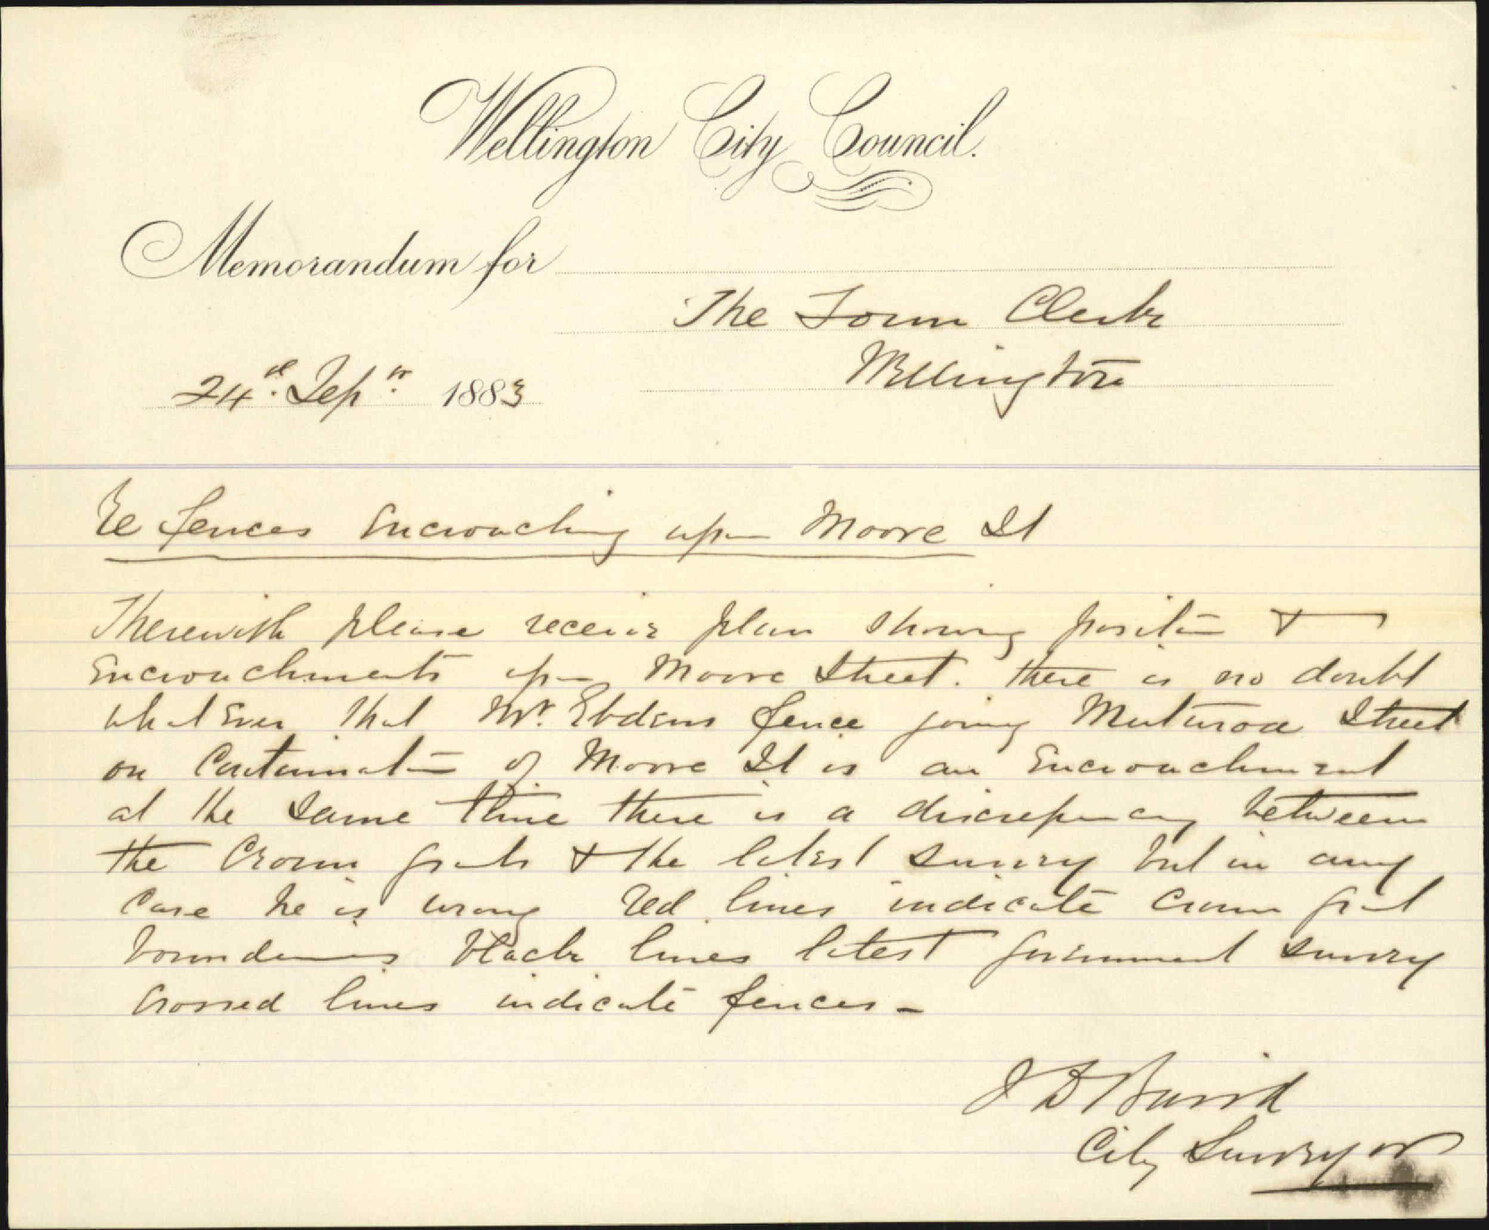 Wellington City Council.
Memorandum for
The Town Clerk
Wellington
24th Sepr. 1883
Re fences encroaching upon Moore St
Therewith please receive plan showing position &
encroachments upon Moore Street. there is no doubt
whatever that Mr. Ebdens fence joing Murturoa Street
on Continuation of Moore St is an Encroachment
at the same time there is a discrepancy between
the Crown grants & the latest survey but in any
case he is wrong Red lines indicate Crown grant
boundaries black lines latest government survey
crossed lines indicate fences -
J D Baird
City Surveyor